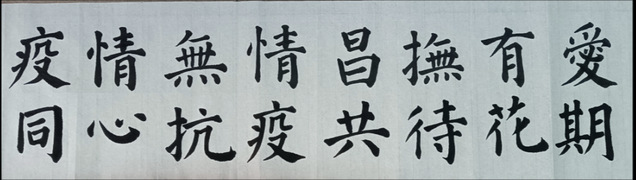 疫情無情昌撫有愛
同心抗疫共待花期